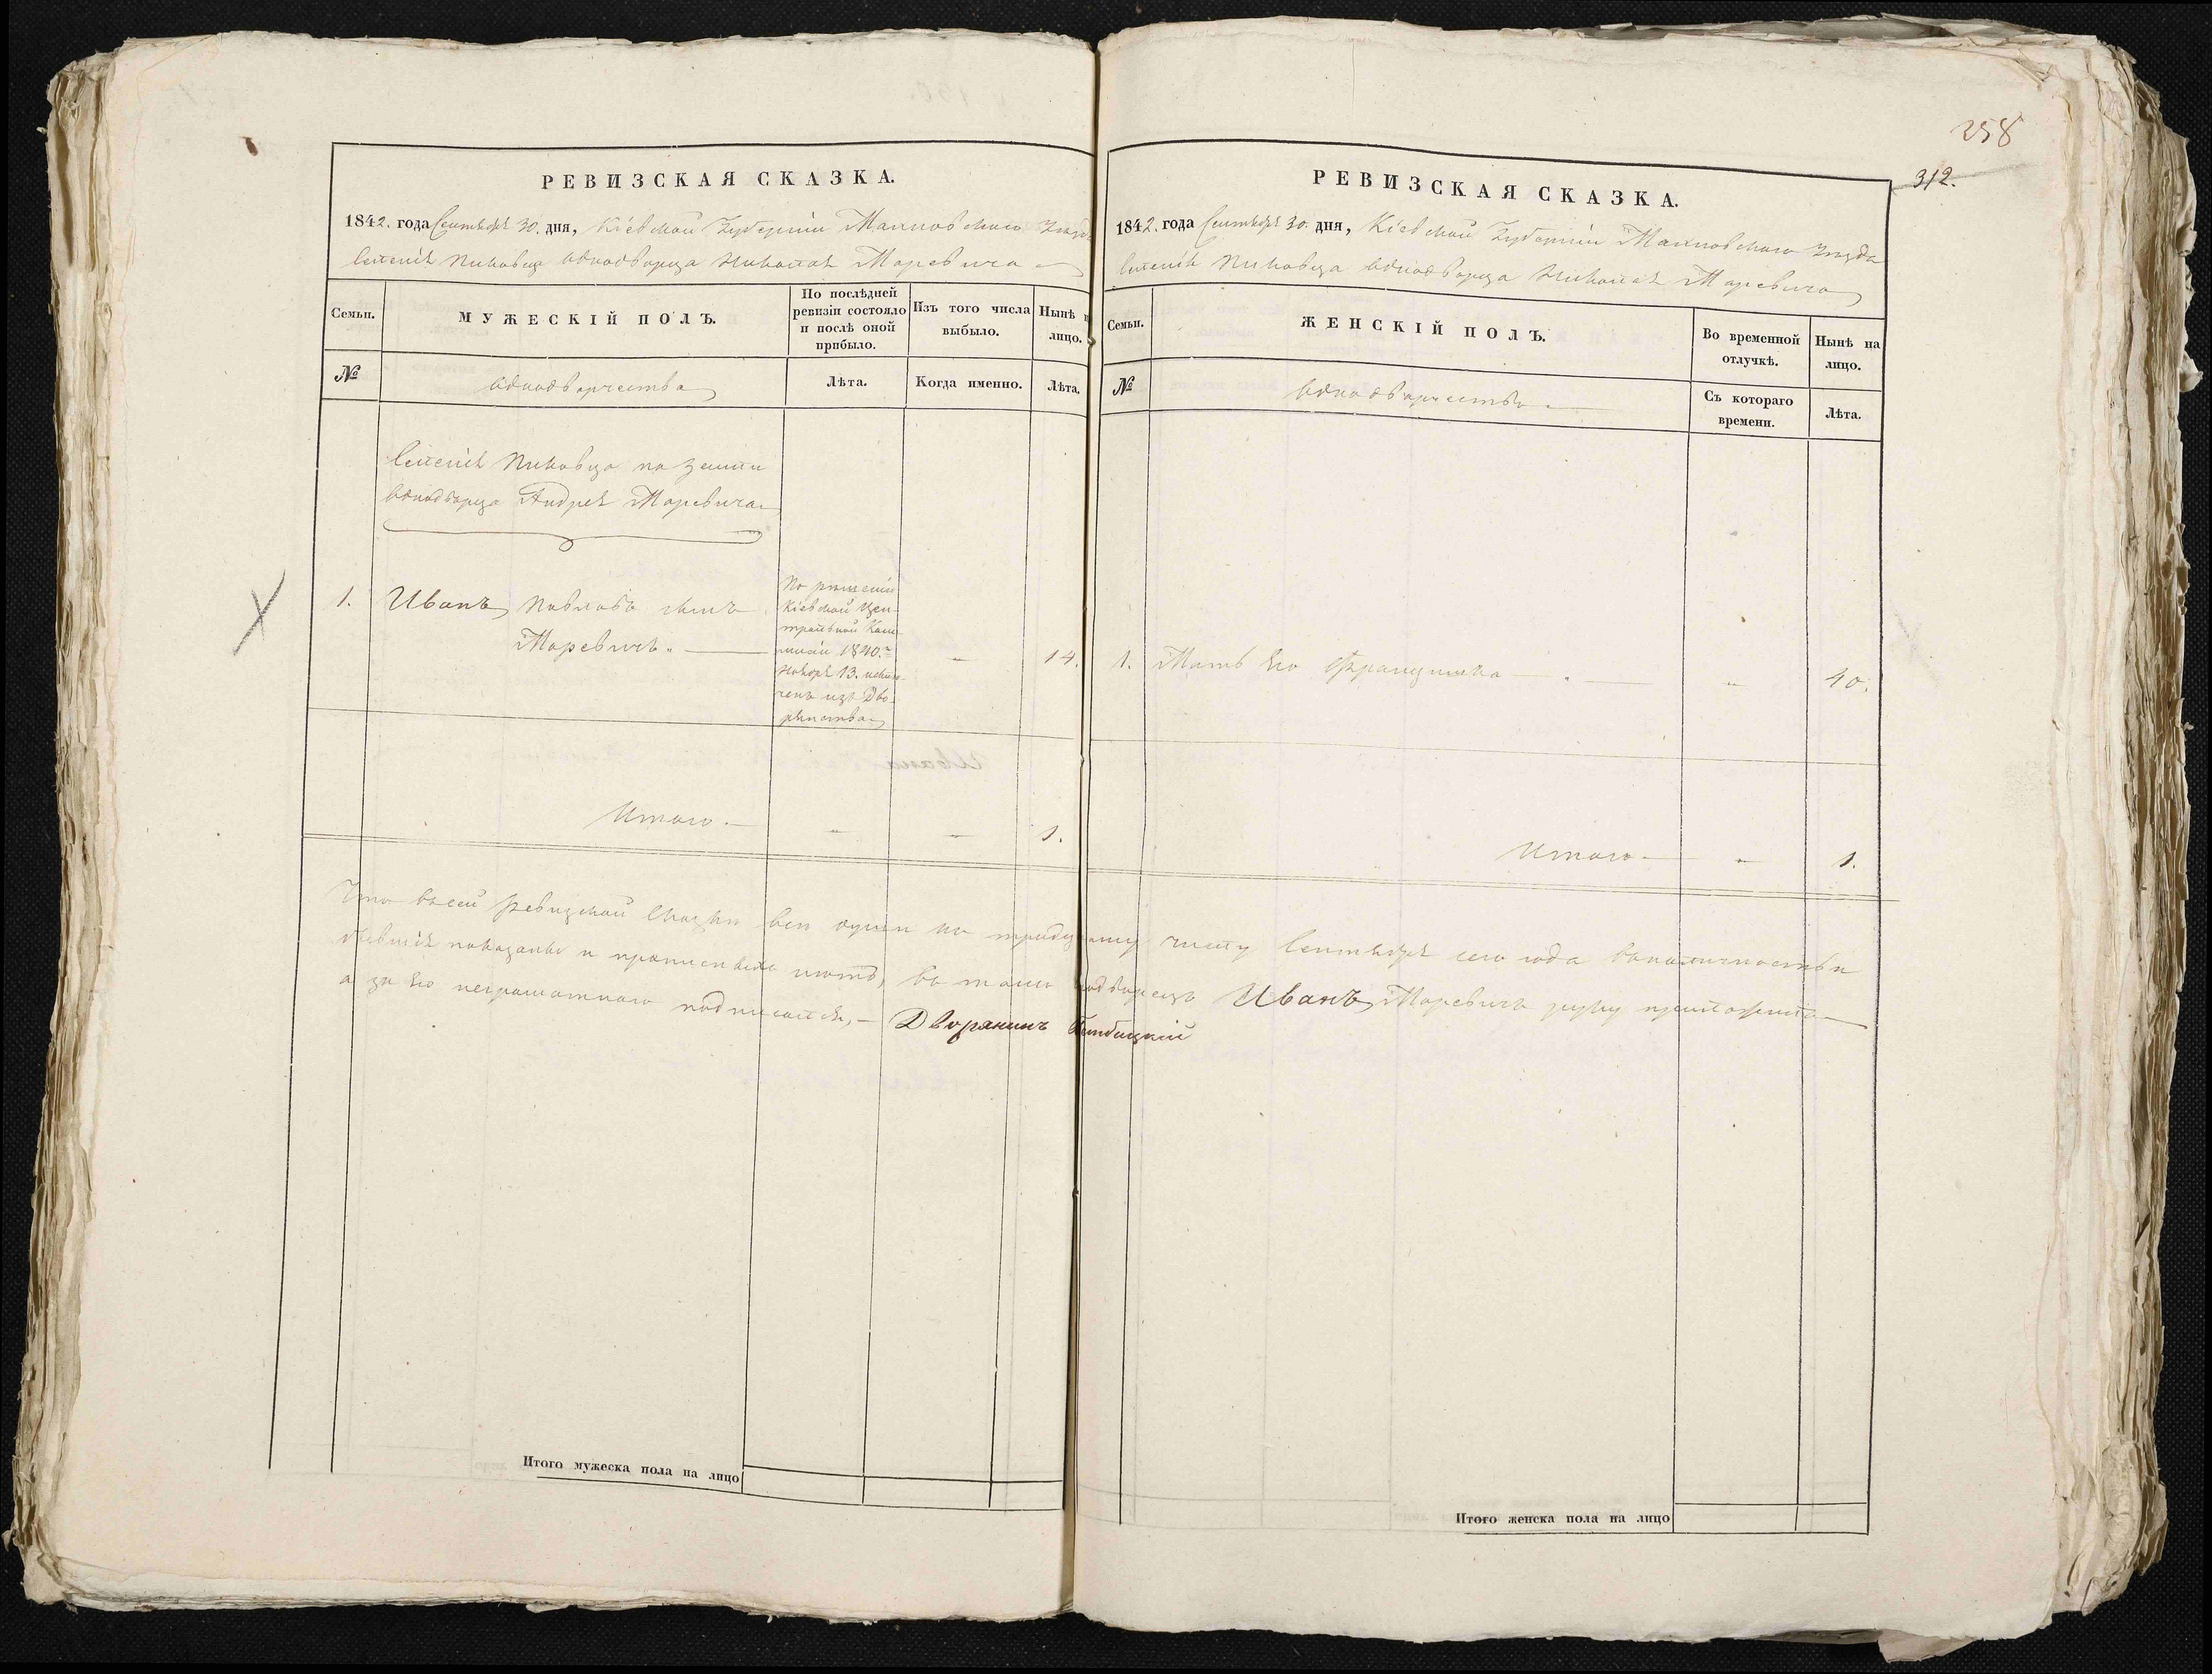 258
312.
РЕВИЗСКАЯ СКАЗКА.
1842. года Сентября 30. дня, Кіевской Губерніи Махновскаго Уѣзда
Селенія Пиковца однодворца Николая Маревича
Семьи.
МУЖЕСКІЙ ПОЛЪ.
По послѣдней ревизіи состояло и послѣ оной прибыло.
Изъ того числа выбыло.
Нынѣ на лицо.
№
однодворчества
Лѣта.
Когда именно.
Лѣта.
Селенія Пиковца на земли
однодворца Андрея Маревича
1.
Иванъ Павловъ сынъ
Маревичъ.
По рѣшенію
Кіевской Цен-
тральной Ком-
мисіи 1840.г
Ноября 13. исклю-
ченъ изъ Дво-
рянства
14.
Итого
1.
РЕВИЗСКАЯ СКАЗКА.
1842. года Сентября 30. дня, Кіевской Губерніи Махновскаго Уѣзда
Селенія Пиковца однодворца Николая Маревича
Семьи.
ЖЕНСКІЙ ПОЛЪ.
Во временной отлучкѣ.
Нынѣ на лицо.
№
однодворчества
Съ котораго времени.
Лѣта.
1.
Мать его Францишка
40.
Итого
1.
Что въ сей ревизской сказки всѣ души по тридцатому числу Сентября сего года въ наличности
бывшія показаны и прописныхъ нѣтъ, въ томъ однодворецъ Иванъ Маревичъ руку приложилъ
а за его неграмотнаго подписался, – Дворянинъ
Итого мужеска пола на лицо
Итого женска пола на лицо